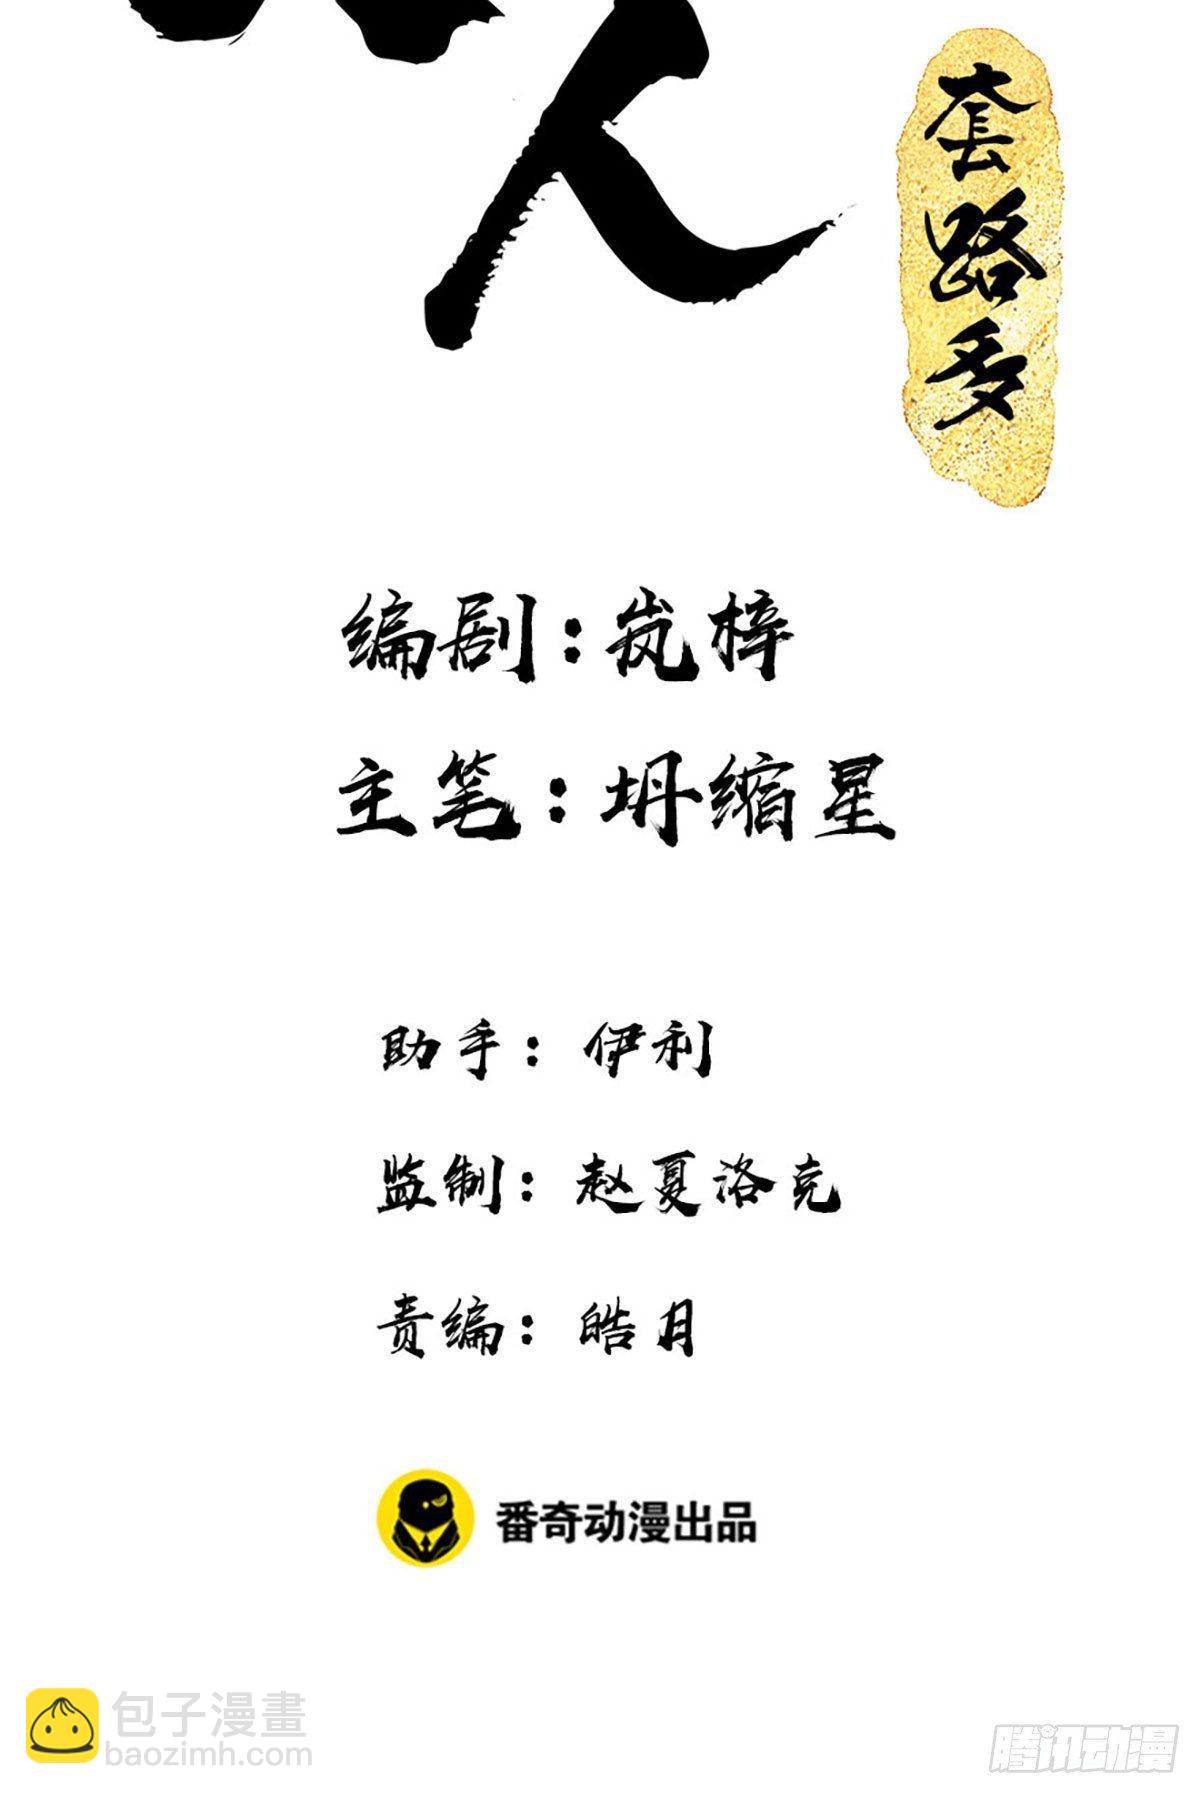 人
套路多
编剧：岚梓
主笔：坍缩星
助手：伊利
监制：赵夏洛克
责编：皓月
番奇动漫出品
包子漫畫
baozimh.com
腾讯动漫